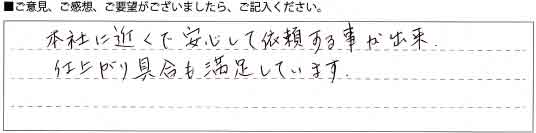 ■ご意見、ご感想、ご要望がございましたら、ご記入ください。
本社に近くで安心して依頼する事が出来.
仕上がり具合も満足しています.